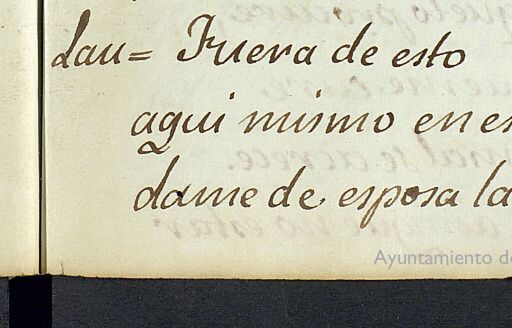 Lau= Fuera de esto
aqui mismo en es
dame de esposa la
Ayuntamiento de